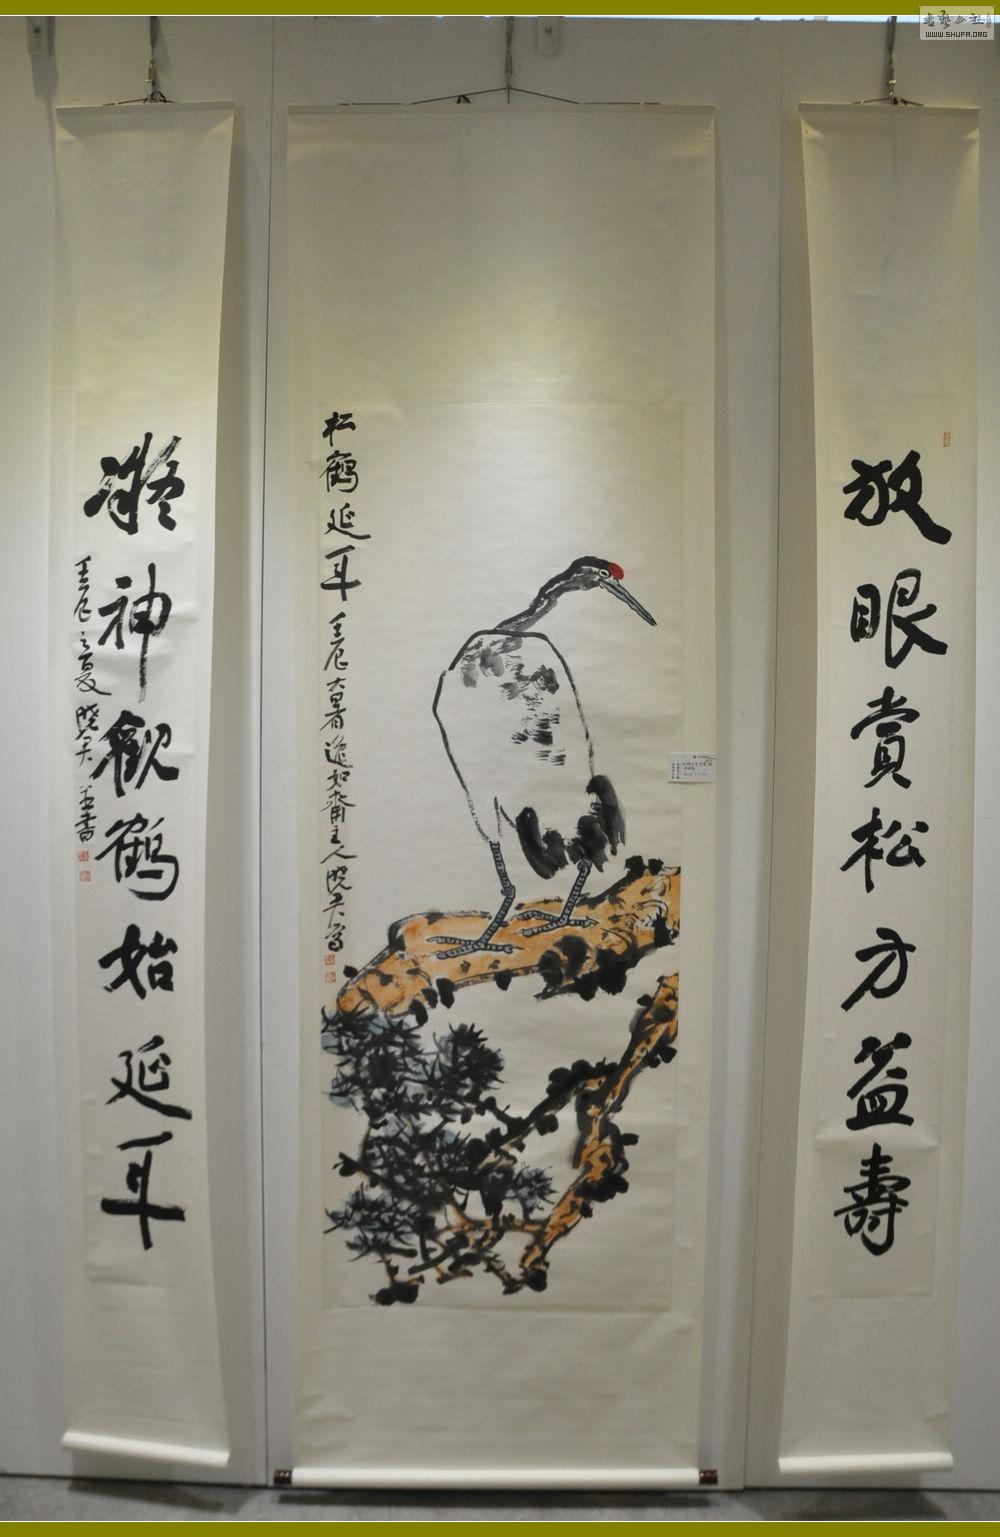 放眼賞松方益壽
松鶴延年
壬辰大暑逸如齋主人晓昊写
凝神觀鶴始延年
壬辰之夏晓昊並書
書藝公社
WWW.SHUFA.ORG